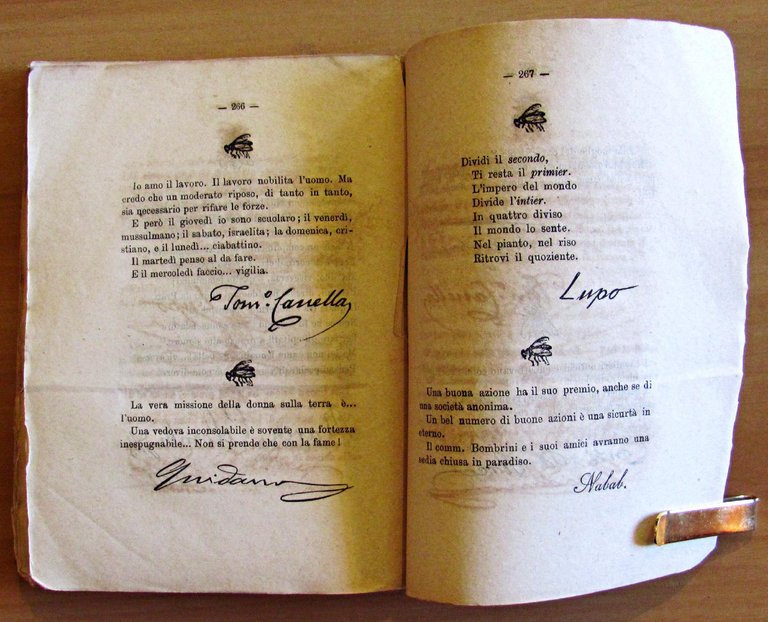 — 266 —
Io amo il lavoro. Il lavoro nobilita l'uomo. Ma
credo che un moderato riposo, di tanto in tanto,
sia necessario per rifare le forze.
E però il giovedì io sono scuolaro; il venerdì,
mussulmano; il sabato, israelita; la domenica, cri-
stiano, e il lunedì... ciabattino.
Il martedì penso al da fare.
E il mercoledì faccio... vigilia.
Tom.º Canella
La vera missione della donna sulla terra è...
l'uomo.
Una vedova inconsolabile è sovente una fortezza
inespugnabile... Non si prende che con la fame!
— 267 —
Dividi il secondo,
Ti resta il primier.
L'impero del mondo
Divide l'intier.
In quattro diviso
Il mondo lo sente.
Nel pianto, nel riso
Ritrovi il quoziente.
Lupo
Una buona azione ha il suo premio, anche se di
una società anonima.
Un bel numero di buone azioni è una sicurtà in
eterno.
Il comm. Bombrini e i suoi amici avranno una
sedia chiusa in paradiso.
Nabab.